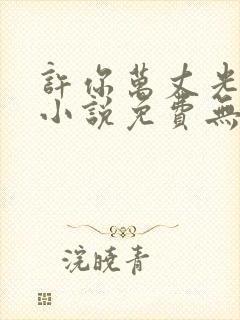 許你萬丈光
小說免費無
浣曉青